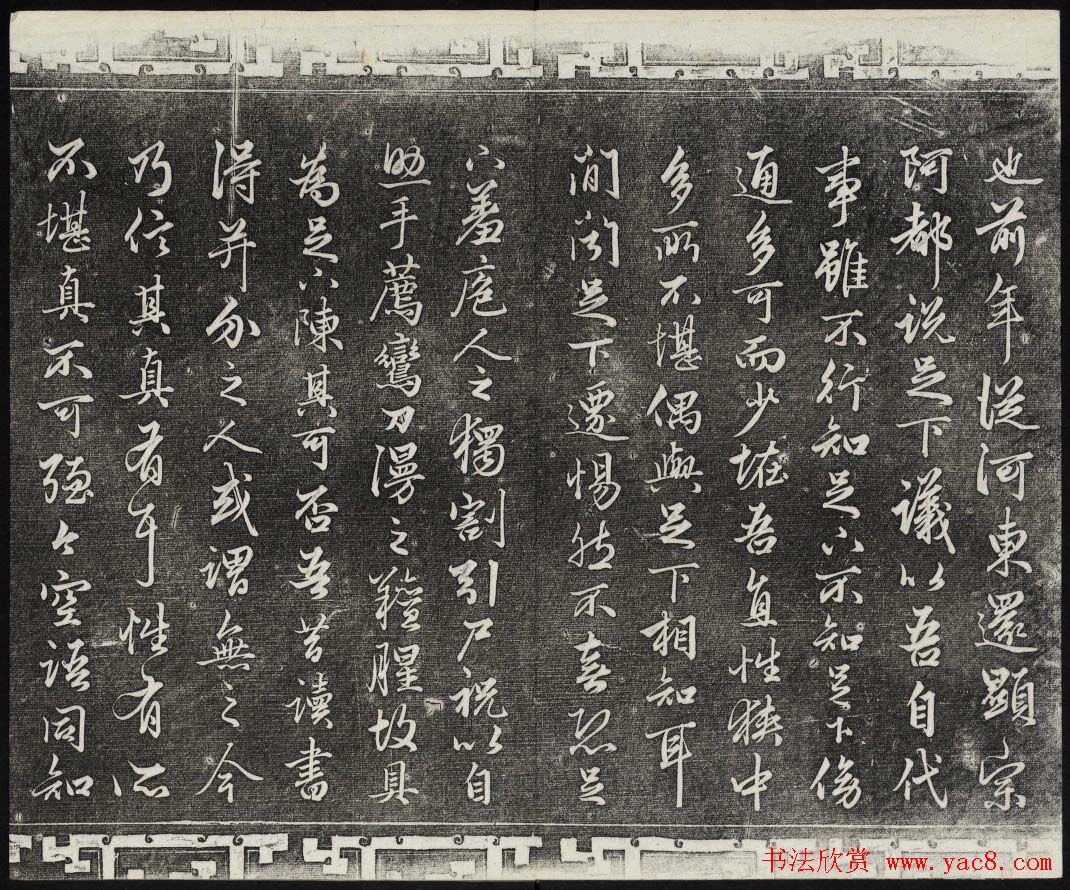 也前年從河東還顯宗
阿都說足下議以吾自代
事雖不行知足下不知足下傍
通多可而少恠吾直性狹中
多所不堪偶與足下相知耳
間聞足下遷惕然不喜恐足
下羞庖人之獨割引尸祝以自
助手薦鸞刀漫之羶腥故具
為足下陳其可否吾昔讀書
得并介之人或謂無之今
乃信其真有耳性有所
不堪真不可強今空語同知
书法欣赏 www.yac8.com